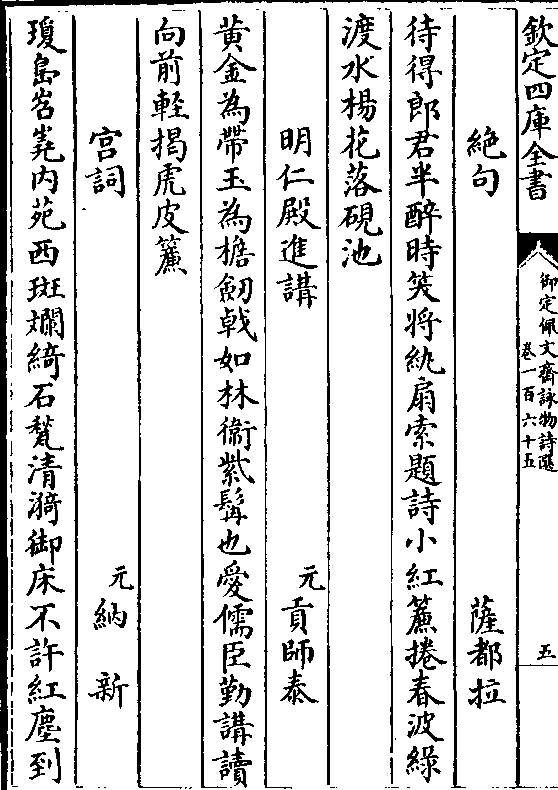 欽定四庫全書
御定佩文齋詠物詩選
卷一百六十五
五
絶句 薩都拉
待得郎君半醉時笑將紈扇索題詩小紅簾捲春波綠
渡水楊花落硯池
明仁殿進講 元貢師泰
黃金為帶玉為檐劒㦸如林衞紫髯也愛儒臣勤講讀
向前輕揭虎皮簾
宫詞 元納新
瓊島岧嶤内苑西斑斕綺石甃清漪御床不許紅塵到